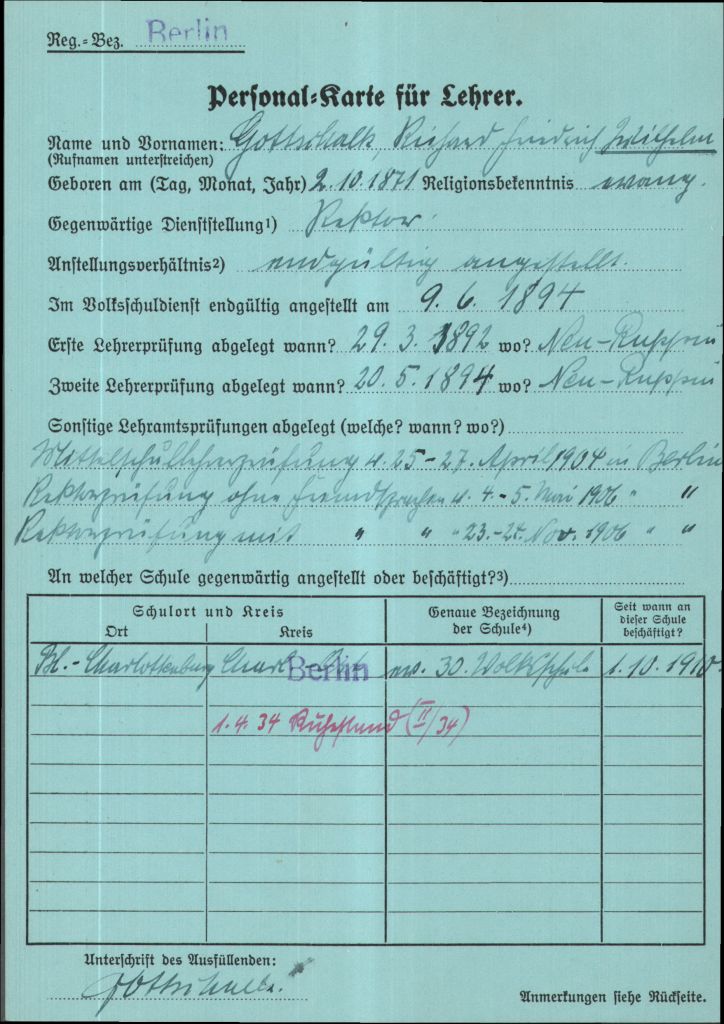 Reg.-Bez. Berlin
Personal-Karte für Lehrer.
Name und Vornamen: Gottschalk, Richard Friedrich Wilhelm
(Rufnamen unterstreichen)
Geboren am (Tag, Monat, Jahr) 2.10.1871 Religionsbekenntnis evang.
Gegenwärtige Dienststellung¹) Rektor.
Anstellungsverhältnis²) endgültig angestellt.
Im Volksschuldienst endgültig angestellt am 9.6.1894
Erste Lehrerprüfung abgelegt wann? 29.3.1892 wo? Neu-Ruppin
Zweite Lehrerprüfung abgelegt wann? 20.5.1894 wo? Neu-Ruppin
Sonstige Lehramtsprüfungen abgelegt (welche? wann? wo?)
Mittelschullehrerprüfung v. 25-27. April 1904 in Berlin
Rektorprüfung ohne Fremdsprachen v. 4.-5. Mai 1906 " "
Rektorprüfung mit " " " 23.-24. Nov. 1906 " "
An welcher Schule gegenwärtig angestellt oder beschäftigt?³)
Schulort und Kreis
Ort
Kreis
Genaue Bezeichnung
der Schule⁴)
Seit wann an
dieser Schule
beschäftigt?
Bl.-Charlottenburg Berlin ev. 30. Volksschule 1.10.1910
1.4.34 Ruhestand (II/34)
Unterschrift des Ausfüllenden:
Gottschalk.
Anmerkungen siehe Rückseite.